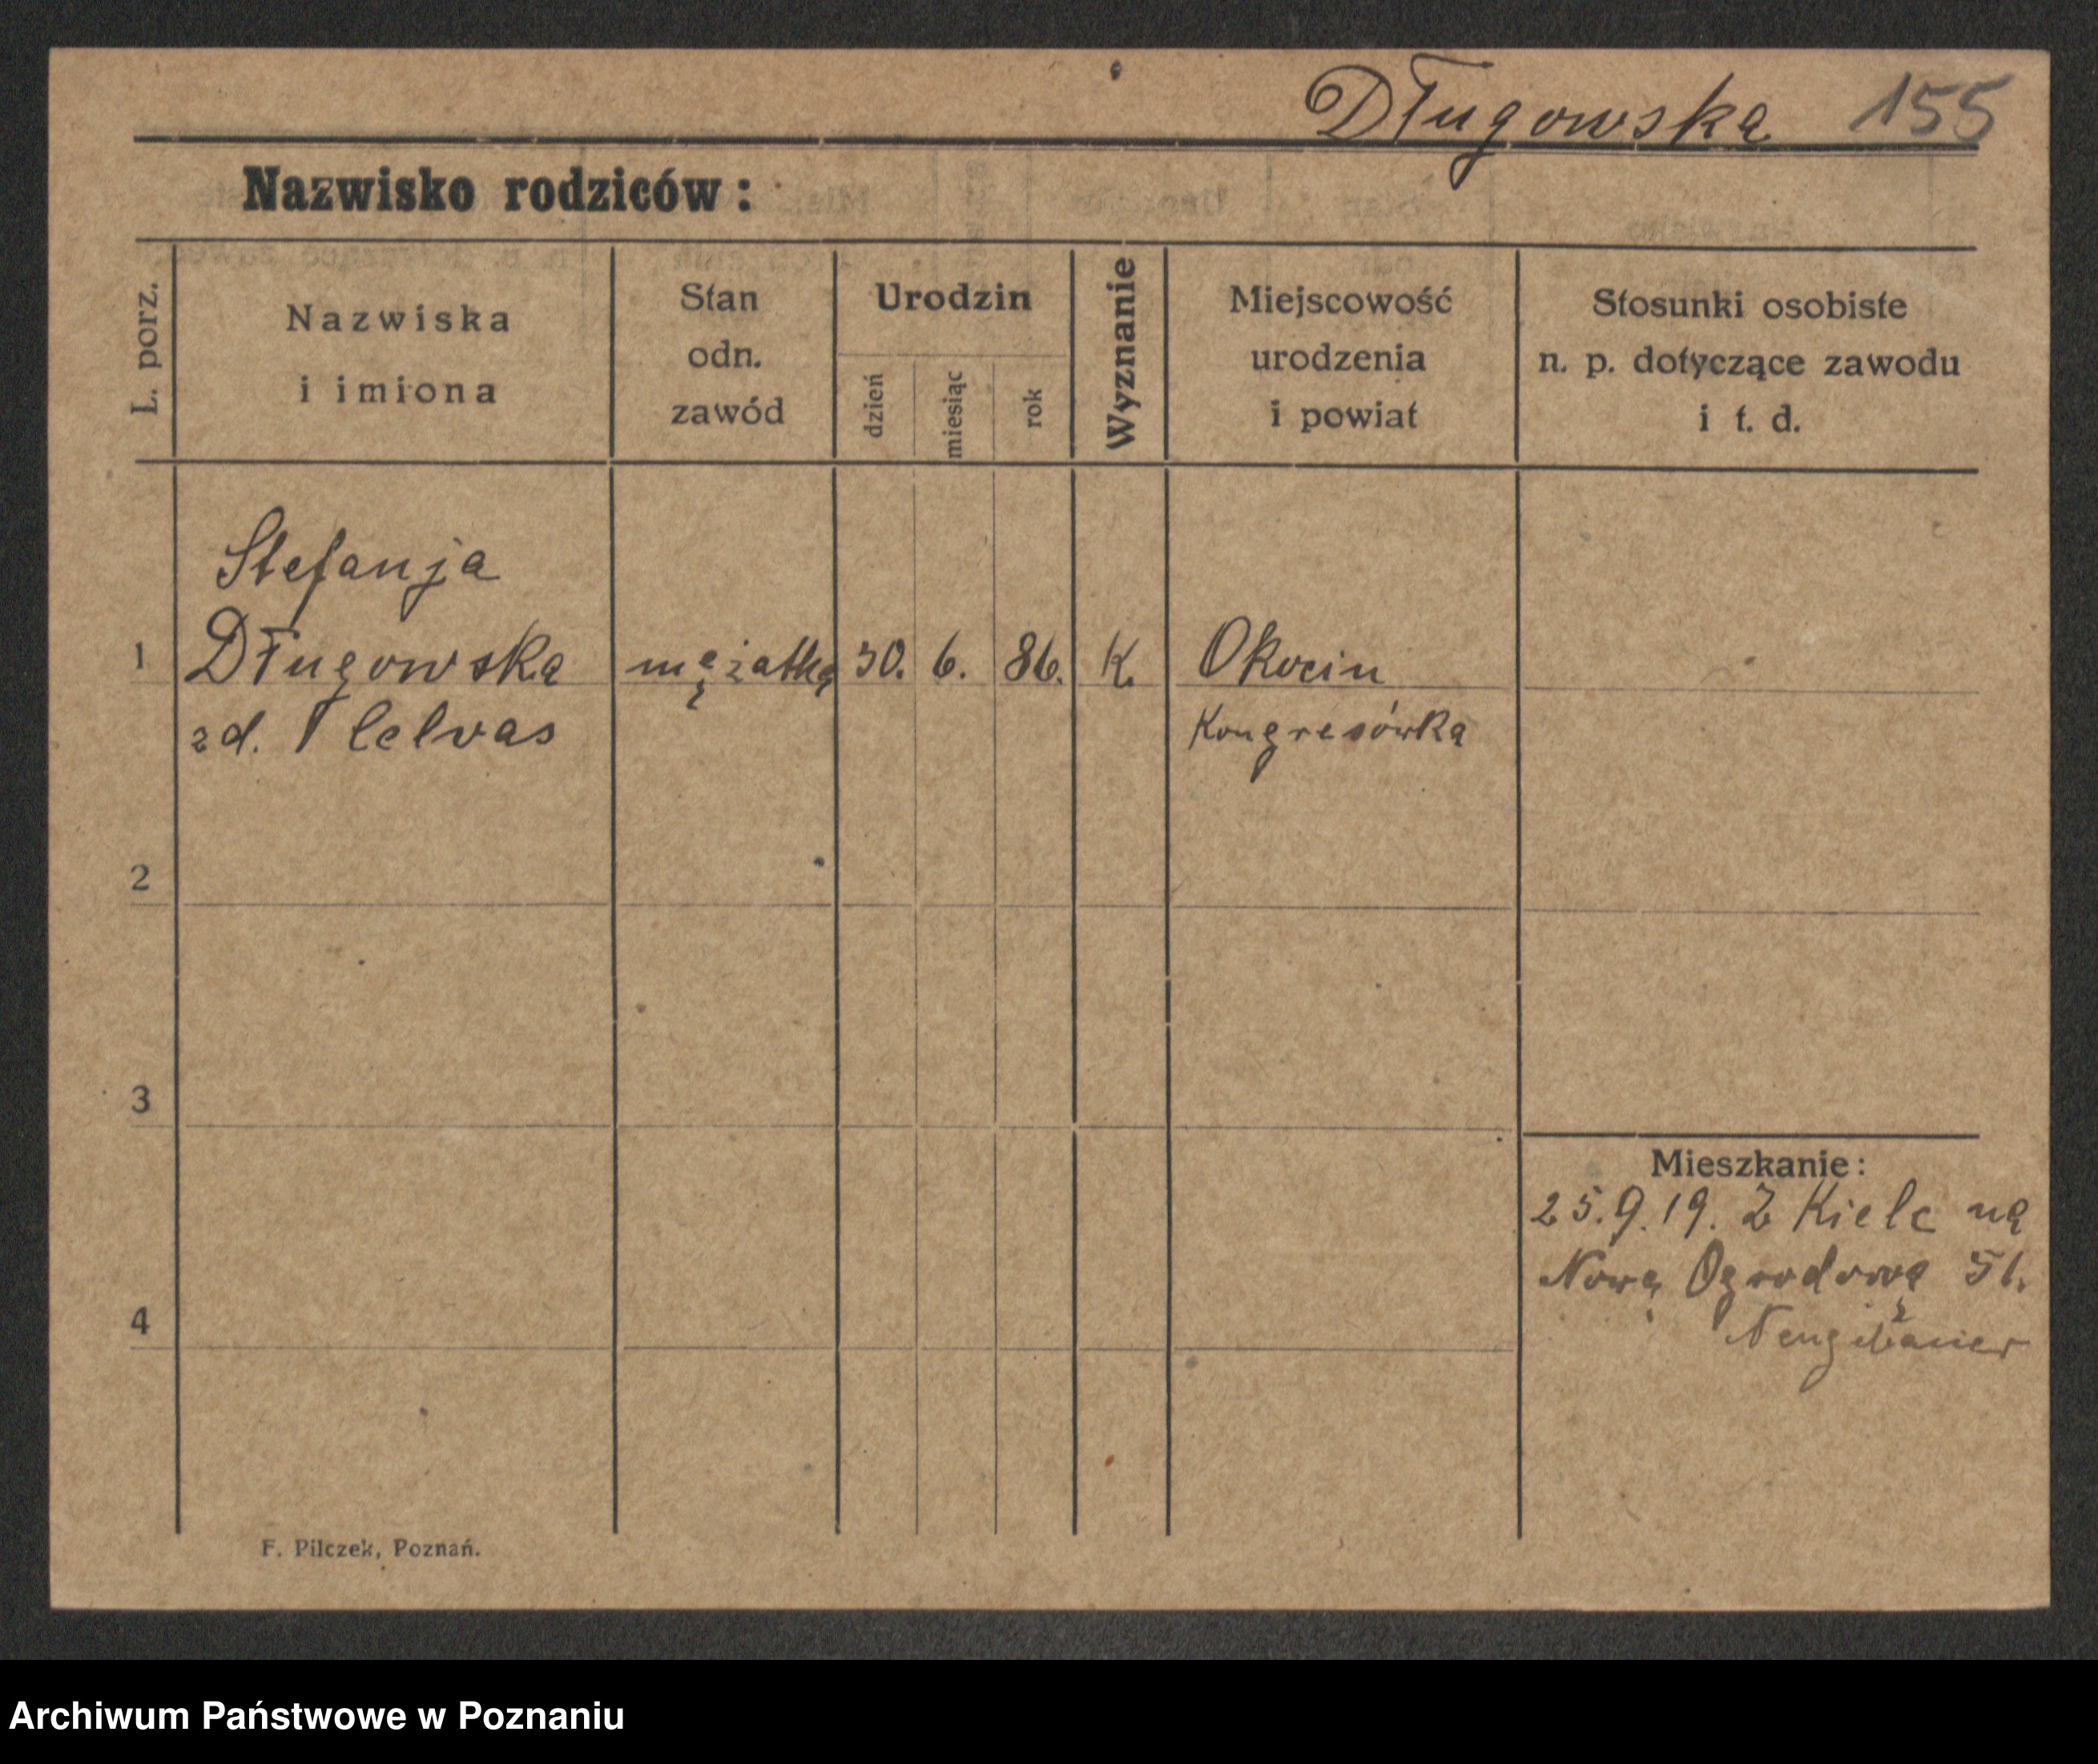 Długowska 155
Nazwisko rodziców:
L. porz.
Nazwiska
i imiona
Stan
odn.
zawód
Urodzin
dzień
miesiąc
rok
Wyznanie
Miejscowość
urodzenia
i powiat
Stosunki osobiste
n. p. dotyczące zawodu
i t. d.
Stefanja
1 Długowska mężatka 30. 6. 86. K. Okocin
zd. Kongresówka
2
3
4
Mieszkanie:
25.9.19. Z Kielc na
Nową Ogrodową 51.
F. Pilczek, Poznań.
Archiwum Państwowe w Poznaniu